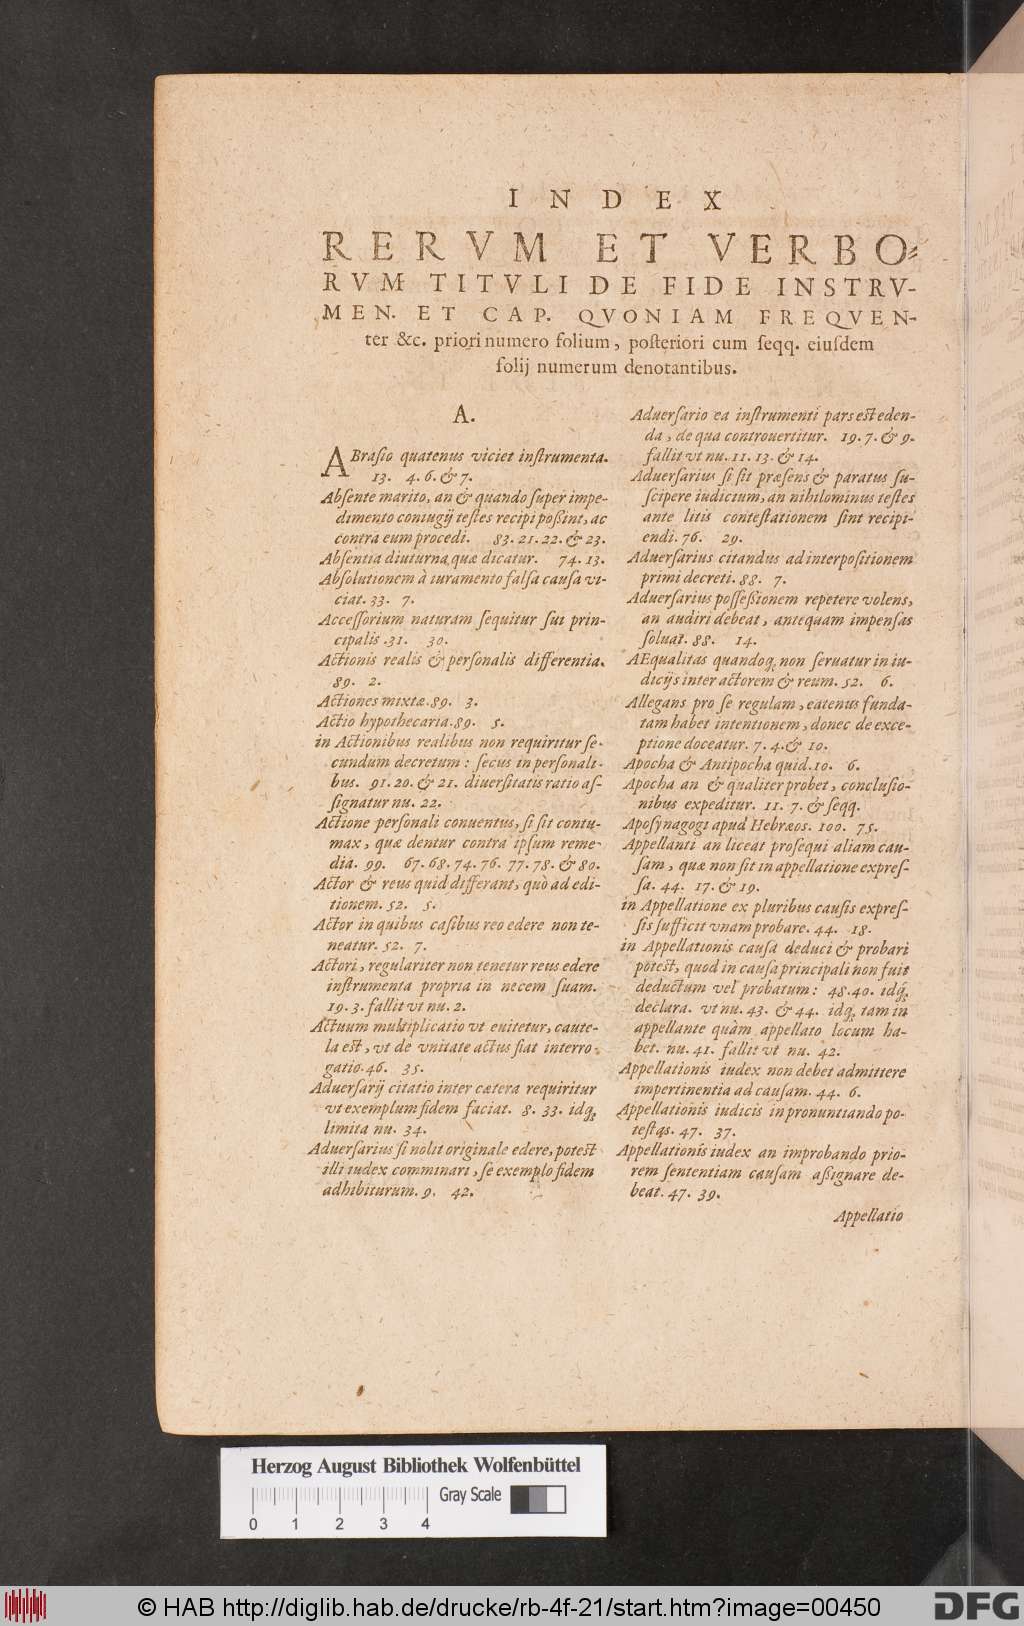 INDEX
RERVM ET VERBO-
RVM TITVLI DE FIDE INSTRV-
MEN. ET CAP. QVONIAM FREQVEN-
ter &c. priori numero folium, posteriori cum seqq. eiusdem
folij numerum denotantibus.
A.
ABrasio quatenus viciet instrumenta.
13. 4. 6. & 7.
Absente marito, an & quando super impe-
dimento coniugij testes recipi poßint, ac
contra eum procedi. 83. 21. 22. & 23.
Absentia diuturna, quæ dicatur. 74. 13.
Absolutionem à iuramento falsa causa vi-
ciat. 33. 7.
Accessorium naturam sequitur sui prin-
cipalis. 31. 30.
Actionis realis & personalis differentia.
89. 2.
Actiones mixtæ. 89. 3.
Actio hypothecaria. 89. 5.
in Actionibus realibus non requiritur se-
cundum decretum: secus in personali-
bus. 91. 20. & 21. diuersitatis ratio as-
signatur nu. 22.
Actione personali conuentus, si sit contu-
max, quæ dentur contra ipsum reme-
dia. 99. 67. 68. 74. 76. 77. 78. & 80.
Actor & reus quid differant, quò ad edi-
tionem. 52. 5.
Actor in quibus casibus reo edere non te-
neatur. 52. 7.
Actori, regulariter non tenetur reus edere
instrumenta propria in necem suam.
19. 3. fallit vt nu. 2.
Actuum multiplicatio vt euitetur, caute-
la est, vt de vnitate actus fiat interro-
gatio. 46. 35.
Aduersarij citatio inter cætera requiritur
vt exemplum fidem faciat. 8. 33. idq;
limita nu. 34.
Aduersarius si nolit originale edere, potest
illi iudex comminari, se exemplo fidem
adhibiturum. 9. 42.
Aduersario ea instrumenti pars est eden-
da, de qua controuertitur. 19. 7. & 9.
fallit vt nu. 11. 13. & 14.
Aduersarius si sit præsens & paratus su-
scipere iudicium, an nihilominus testes
ante litis contestationem sint recipi-
endi. 76. 29.
Aduersarius citandus ad interpositionem
primi decreti. 88. 7.
Aduersarius posseßionem repetere volens,
an audiri debeat, antequam impensas
soluat. 88. 14.
AEqualitas quandoq; non seruatur in iu-
dicijs inter actorem & reum. 52. 6.
Allegans pro se regulam, eatenus funda-
tam habet intentionem, donec de exce-
ptione doceatur. 7. 4. & 10.
Apocha & Antipocha quid. 10. 6.
Apocha an & qualiter probet, conclusio-
nibus expeditur. 11. 7. & seqq.
Aposynagogi apud Hebræos. 100. 75.
Appellanti an liceat prosequi aliam cau-
sam, quæ non sit in appellatione expres-
sa. 44. 17. & 19.
in Appellatione ex pluribus causis expres-
sis sufficit vnam probare. 44. 18.
in Appellationis causa deduci & probari
potest, quod in causa principali non fuit
deductum vel probatum: 48. 40. idq;
declara. vt nu. 43. & 44. idq; tam in
appellante quàm appellato locum ha-
bet. nu. 41. fallit vt nu. 42.
Appellationis iudex non debet admittere
impertinentia ad causam. 44. 6.
Appellationis iudicis in pronuntiando po-
testas. 47. 37.
Appellationis iudex an improbando prio-
rem sententiam causam aßignare de-
beat. 47. 39.
Appellatio
Herzog August Bibliothek Wolfenbüttel
Gray Scale
0 1 2 3 4
© HAB http://diglib.hab.de/drucke/rb-4f-21/start.htm?image=00450
DFG